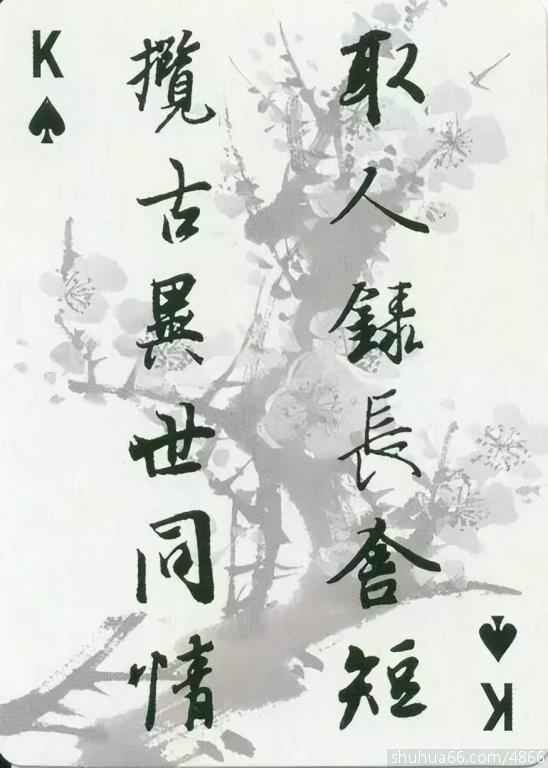 K
取人録長舍短
攬古異世同情
K
shuhua66.com/4866